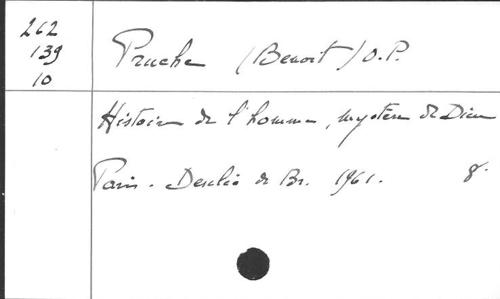 262
139
10
Pruche (Benoit) O.P.
Histoire de l'homme, mystère de Dieu
Paris - Desclée de Br. 1961. 8°